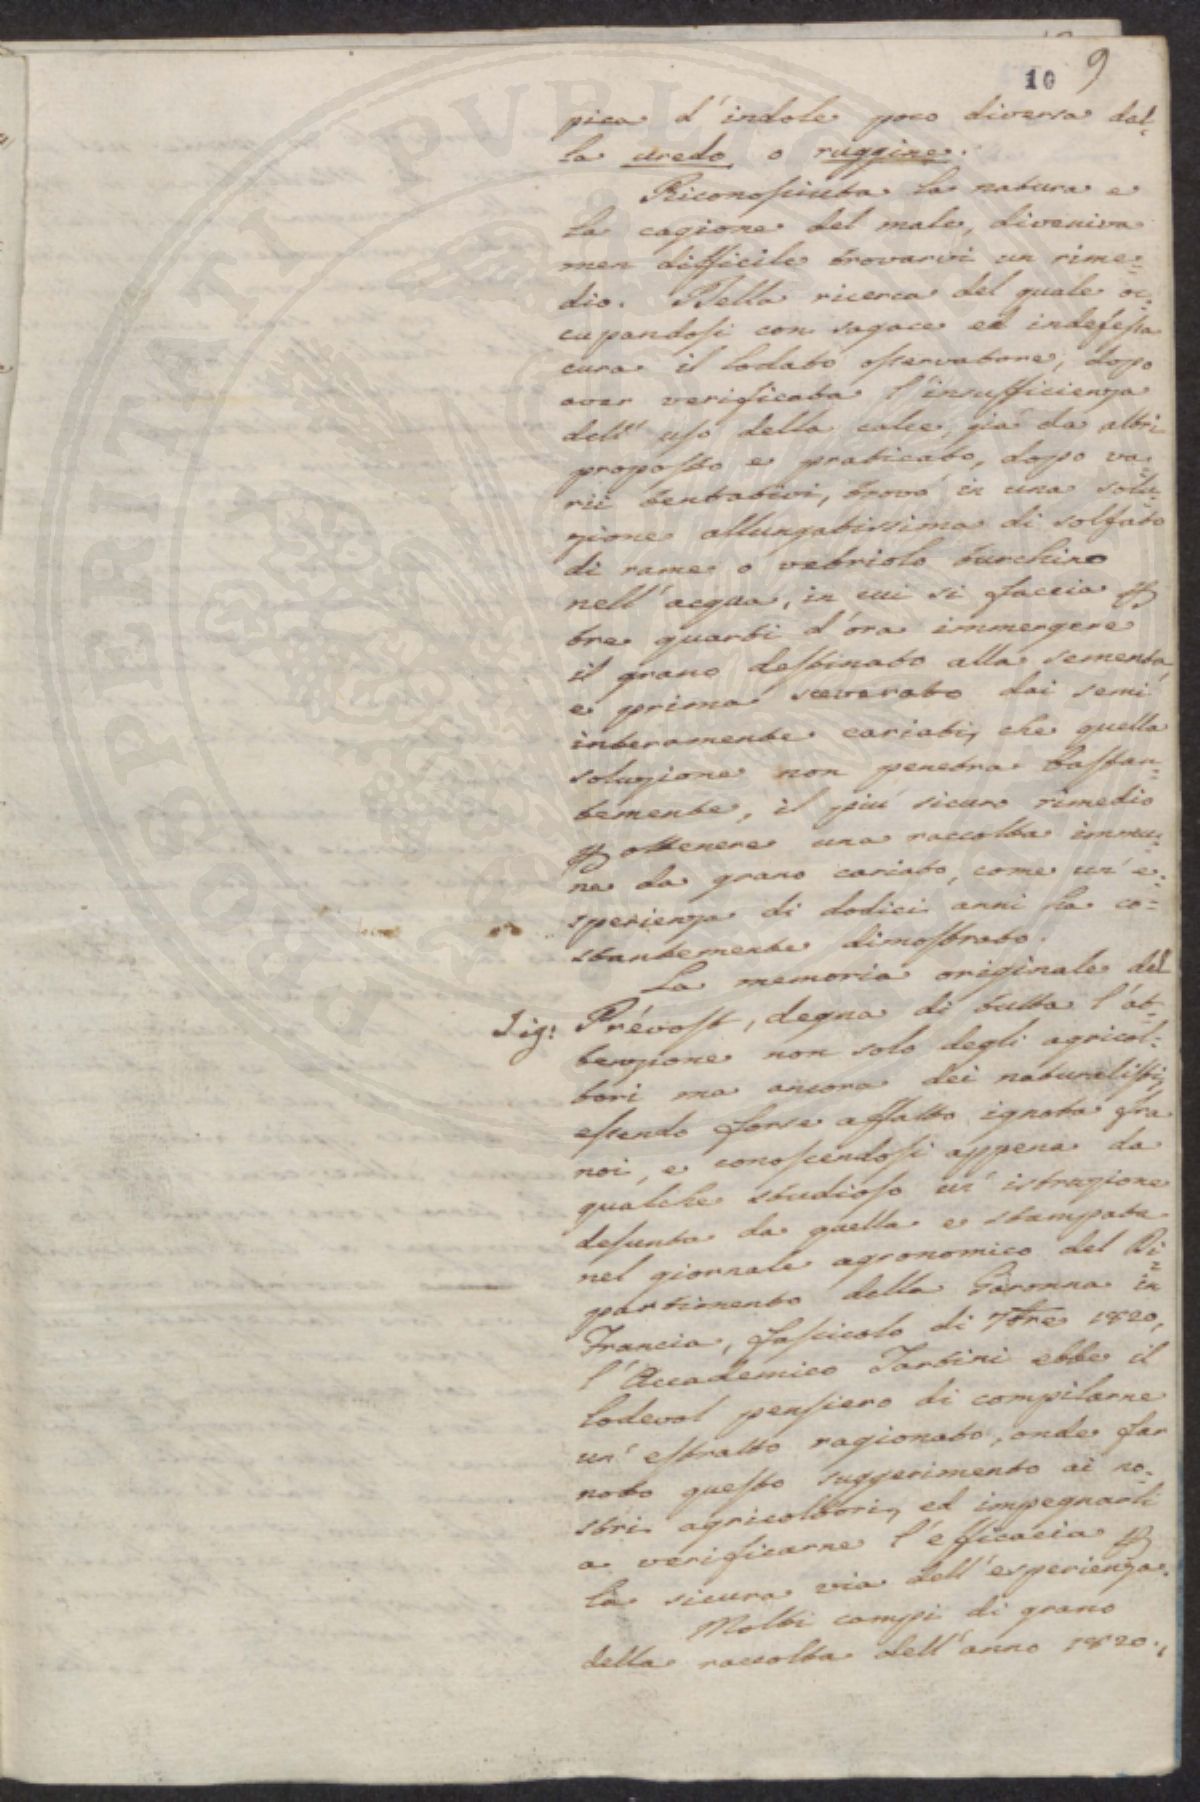 10 9
pica d'indole poco diversa del=
la uredo o ruggine.
Riconosciuta la natura e
la cagione del male, diveniva
men difficile trovarvi un rime=
dio. Nella ricerca del quale oc=
cupandosi con sagace ed indefessa
cura il lodato osservatore, dopo
aver verificata l'insufficienza
dell'uso della calce, già da altri
proposto e praticato, dopo va=
rii tentativi, trovò in una solu=
zione allungatissima di solfato
di rame o vetriolo turchino
nell'acqua, in cui si faccia p
tre quarti d'ora immergere
il grano destinato alla sementa,
e prima sceverato dai semi
interamente cariati, che quella
soluzione non penetra bastan=
temente, il più sicuro rimedio
p ottenere una raccolta immu=
ne da grano cariato, come un'e=
sperienza di dodici anni ha co=
stantemente dimostrato.
La memoria originale del
Sig: Prévost, degna di tutta l'at=
tenzione non solo degli agricol=
tori ma ancora dei naturalisti,
essendo forse affatto ignota fra
noi, e conoscendosi appena da
qualche studioso un'istruzione
desunta da quella e stampata
nel giornale agronomico del Di=
partimento della Garonna in
Francia, fascicolo di 7bre 1820,
l'Accademico Tartini ebbe il
lodevol pensiero di compilarne
un'estratto ragionato, onde far
noto questo suggerimento ai no=
stri agricoltori, ed impegnarli
a verificarne l'efficacia p
la sicura via dell'esperienza.
Molti campi di grano
della raccolta dell'anno 1820.,
PROSPERITATI PUBLICAE